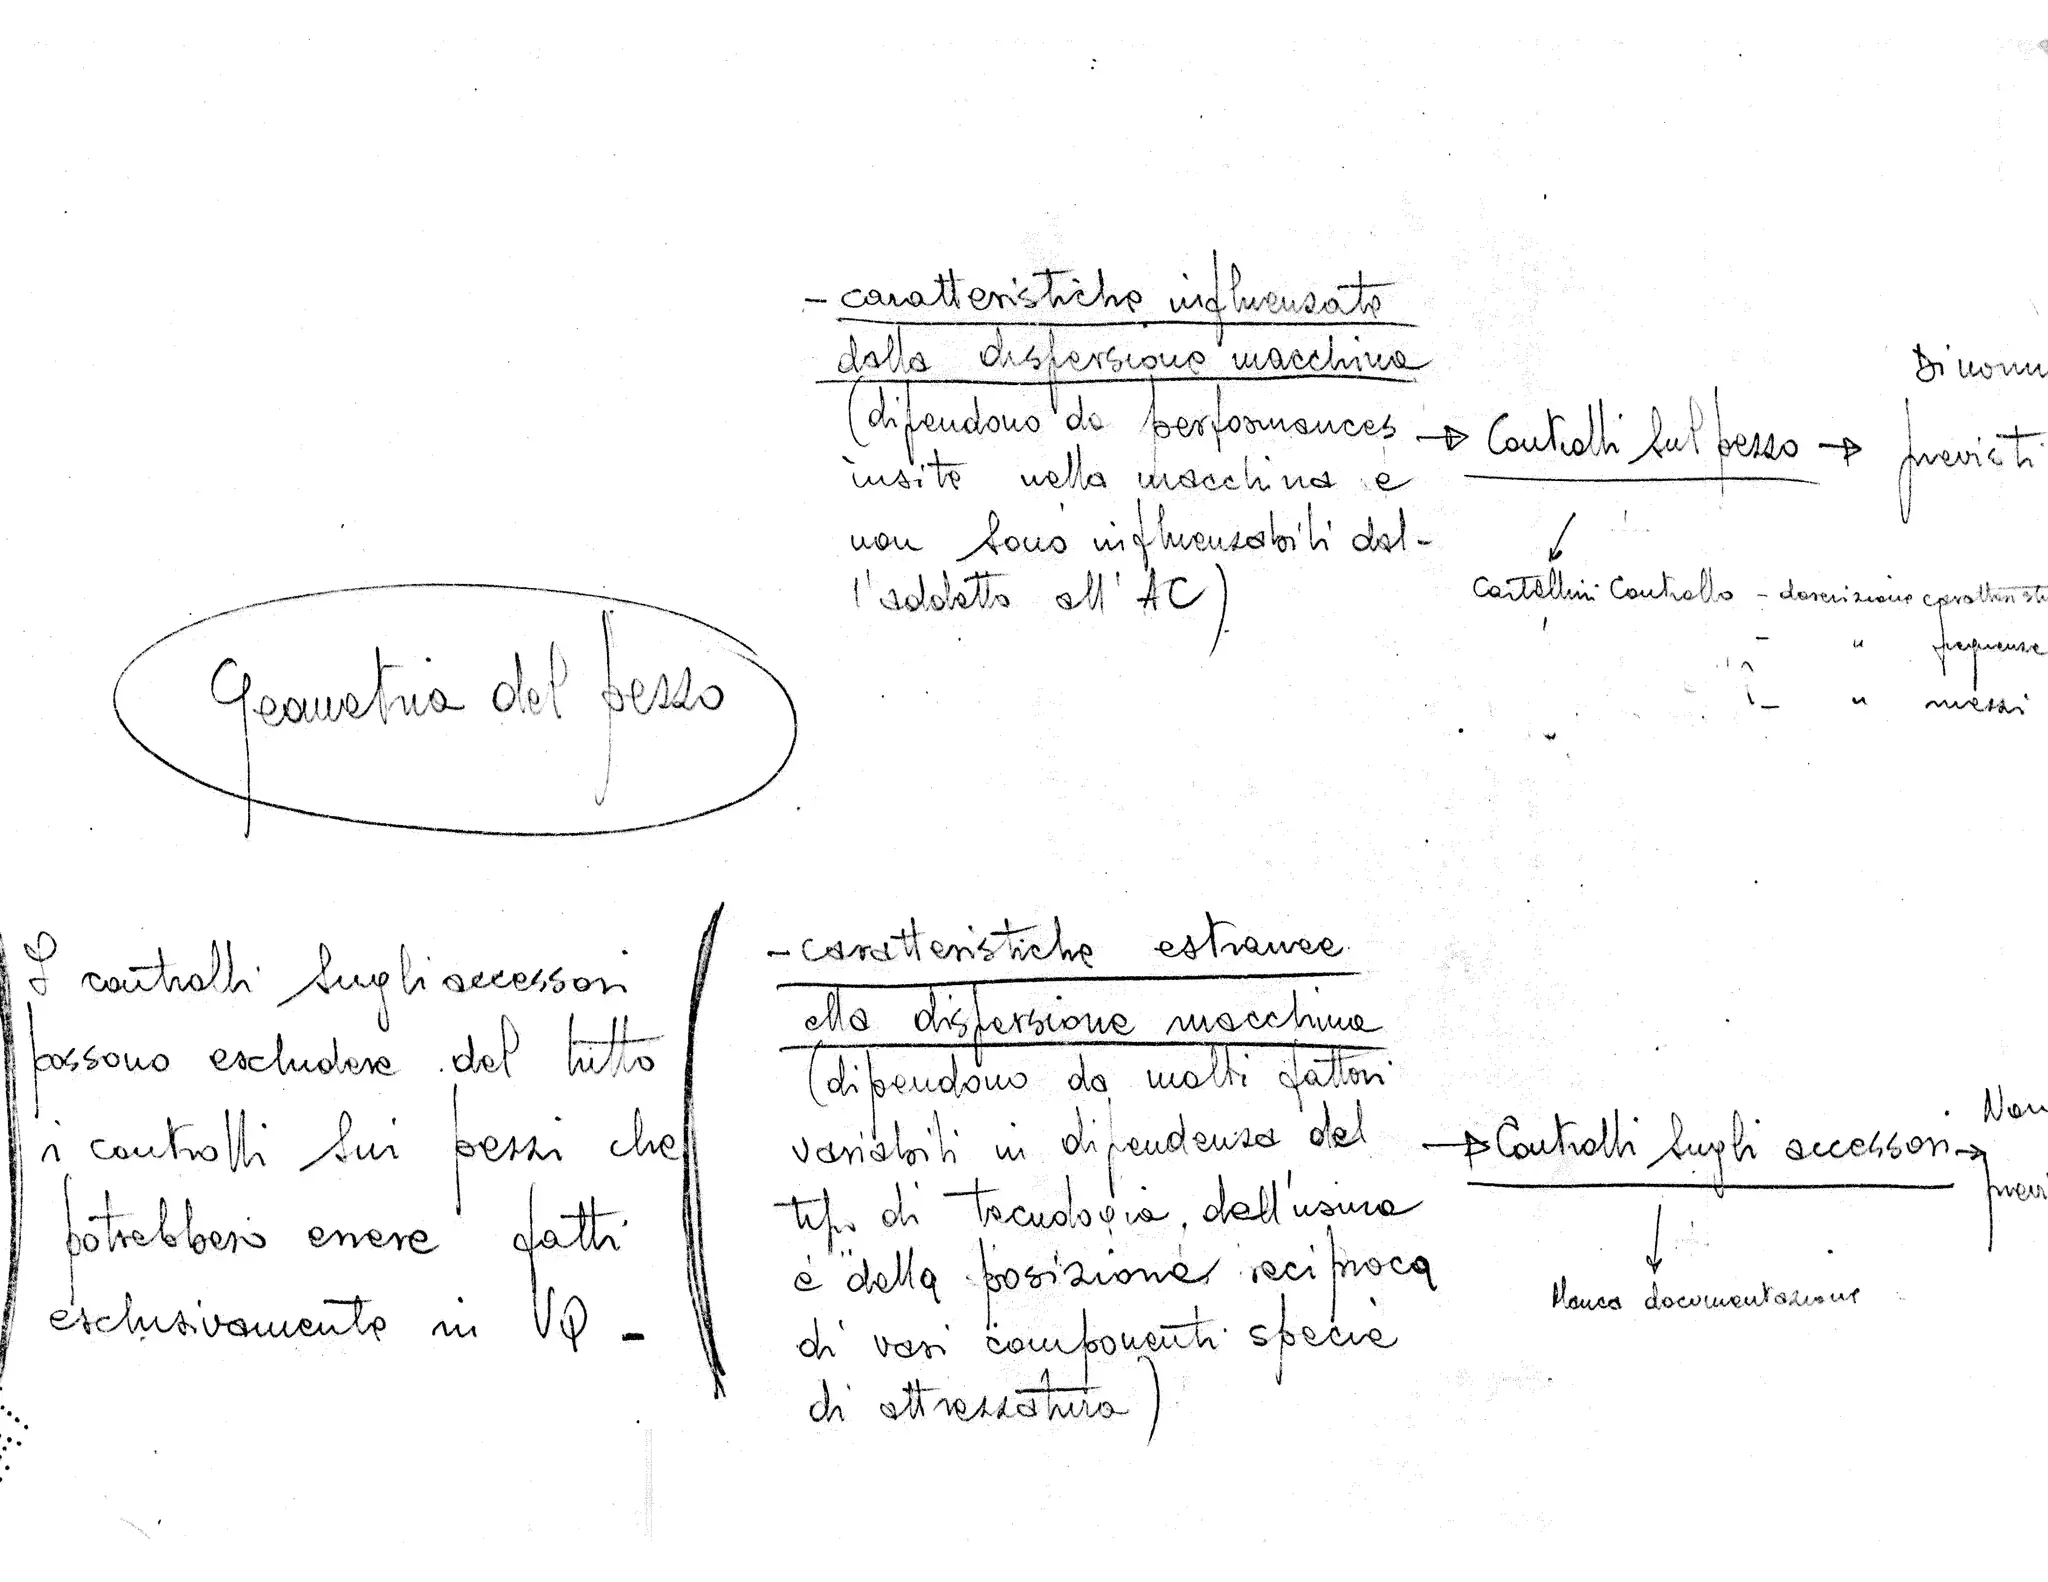 - caratteristiche influenzate
dalla dispersione macchina
(dipendono da performances
insite nella macchina e
non sono influenzabili dal-
l'addetto all'AC)
→ Controlli sul pezzo →
Di norm
previsti
Cartellini Controllo - descrizione caratteristi
- " frequenze
- " mezzi
Geometria del pezzo
I controlli sugli accessori
possono escludere del tutto
i controlli sui pezzi che
potrebbero essere fatti
esclusivamente in VQ -
- caratteristiche estranee
alla dispersione macchina
(dipendono da molti fattori
variabili in dipendenza del
tipo di tecnologia, dell'usura
e della posizione reciproca
di vari componenti specie
di attrezzatura)
→ Controlli sugli accessori →
Non
previ
Manca documentazione